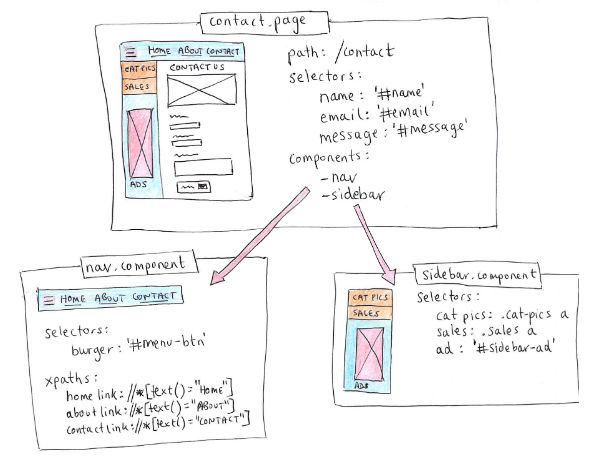 contact.page
HOME ABOUT CONTACT
CAT PICS
SALES
ADS
CONTACT US
path: /contact
selectors:
name: '#name'
email: '#email'
message: '#message'
components:
-nav
-sidebar
nav.component
HOME ABOUT CONTACT
selectors:
burger: '#menu-btn'
xpaths:
home link: //*[text()="HOME"]
about link: //*[text()="ABOUT"]
contact link: //*[text()="CONTACT"]
sidebar.component
CAT PICS
SALES
ADS
selectors:
cat pics: .cat-pics a
sales: .sales a
ad: '#sidebar-ad'